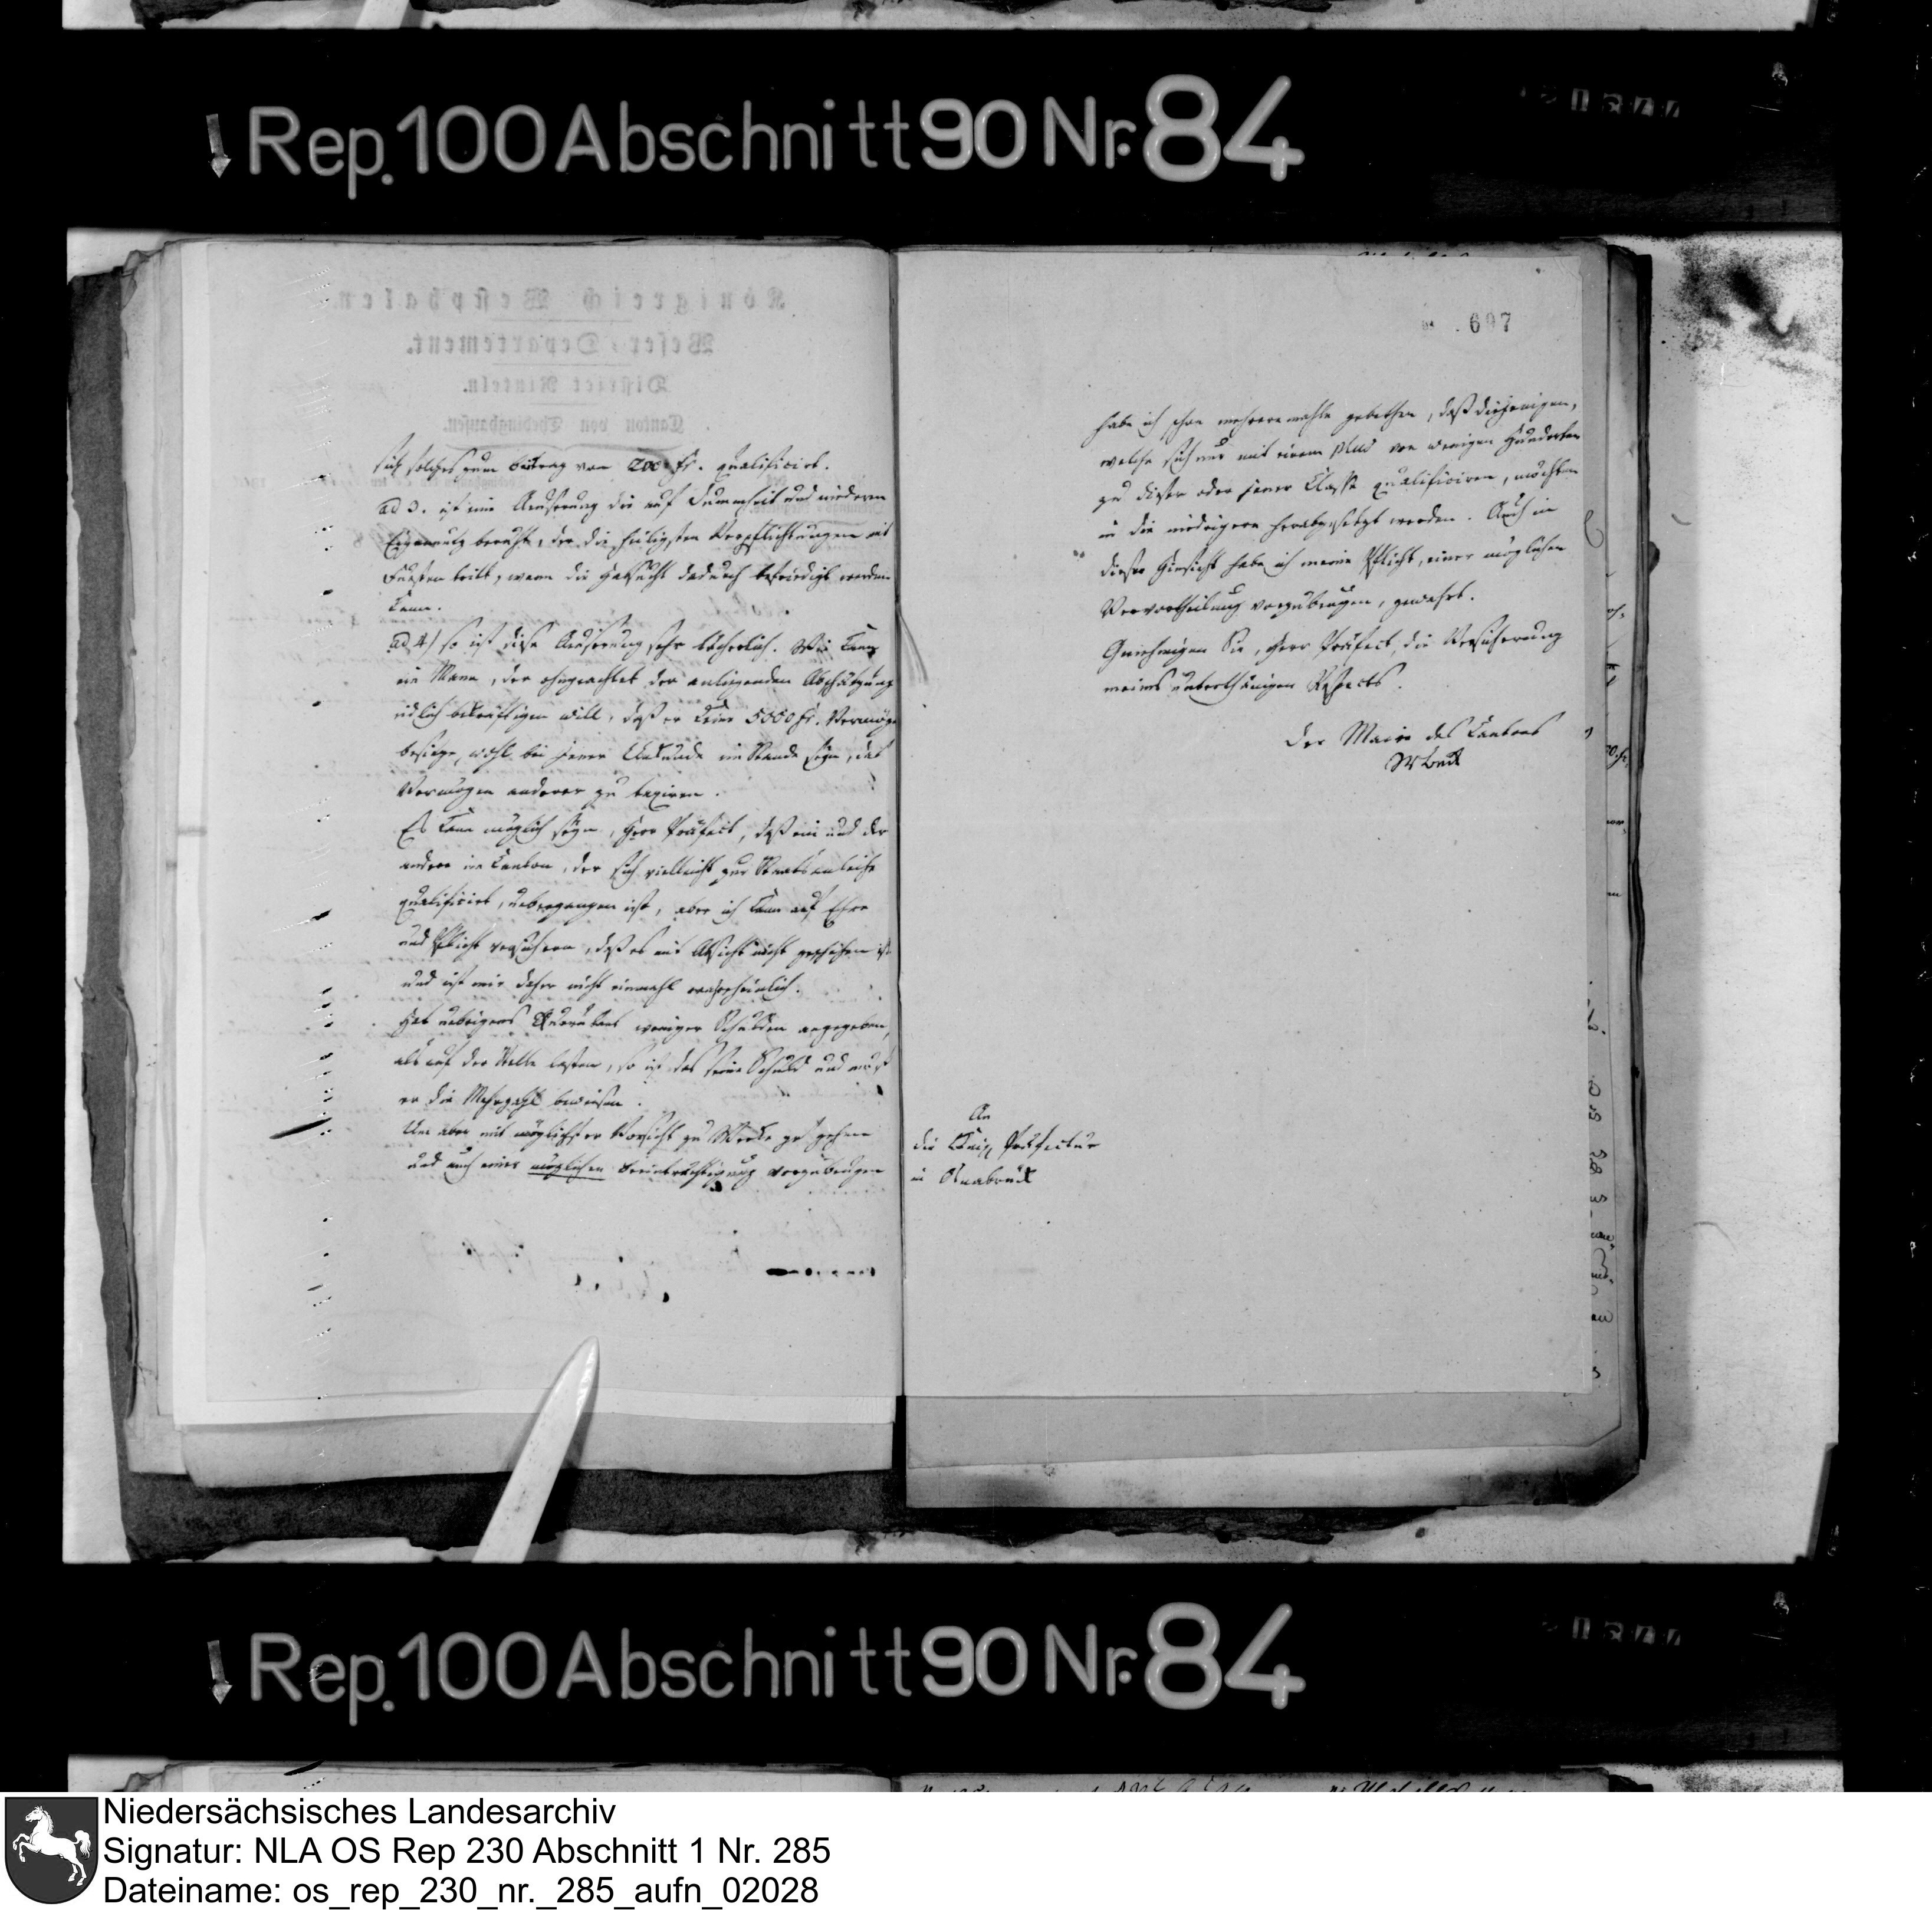 Rep. 100 Abschnitt 90 Nr. 84
Königreich Westphalen.
Weser-Departement.
District Rinteln.
Canton von Thedinghausen.
sich solches zum Beitrag von 200 fr. qualificirt.
ad 3. ist eine Aeuserung die auf Dummheit und niederem
Eigennutz beruht, der die heiligsten Verpflichtungen mit
Fuesten tritt, wenn die Habsucht dadurch befriedigt werden
kann.
ad 4) so ist diese Aeuserung sehr lächerlich. Wie kann
ein Mann, der ohngeachtet der anliegenden Abschätzung
eidlich bekräftigen will, daß er keine 5000 fr. Vermögen
besitze, wohl bei jener Urkunde im Stande seyn, das
Vermögen anderer zu taxiren.
Es kann möglich seyn, Herr Präfect, daß ein und der
andere im Canton, der sich vielleicht zur Staatsanleihe
qualificirt, uebergangen ist, aber ich kann auf Ehre
und Pflicht versichern, daß es mit Absicht nicht geschehen ist
und ist mir daher nicht einmahl wahrscheinlich.
Hat uebrigens Querulant weniger Schulden angegeben,
als auf der Stelle lasten, so ist das seine Schuld und muß
er die Mehrzahl beweisen.
Um aber mit möglichster Vorsicht zu Werke zu gehen
und auch einer möglichen Beeinträchtigung vorzubeugen
697
habe ich schon mehreremahle gebethen, daß diejenigen,
welche sich nur mit einem plus von wenigen Hunderten
zu dieser oder jener Classe qualificiren, möchten
in die niedrigere herabgesetzt werden. Auch in
dieser Hinsicht habe ich meine Pflicht, einer möglichen
Vervortheilung vorzubeugen, gewahrt.
Genehmigen Sie, Herr Präfect, die Versicherung
meines unterthänigen Respects.
Der Maire des Cantons
An
die Königl Präfectur
in Osnabrück
Rep. 100 Abschnitt 90 Nr. 84
Niedersächsisches Landesarchiv
Signatur: NLA OS Rep 230 Abschnitt 1 Nr. 285
Dateiname: os_rep_230_nr._285_aufn_02028